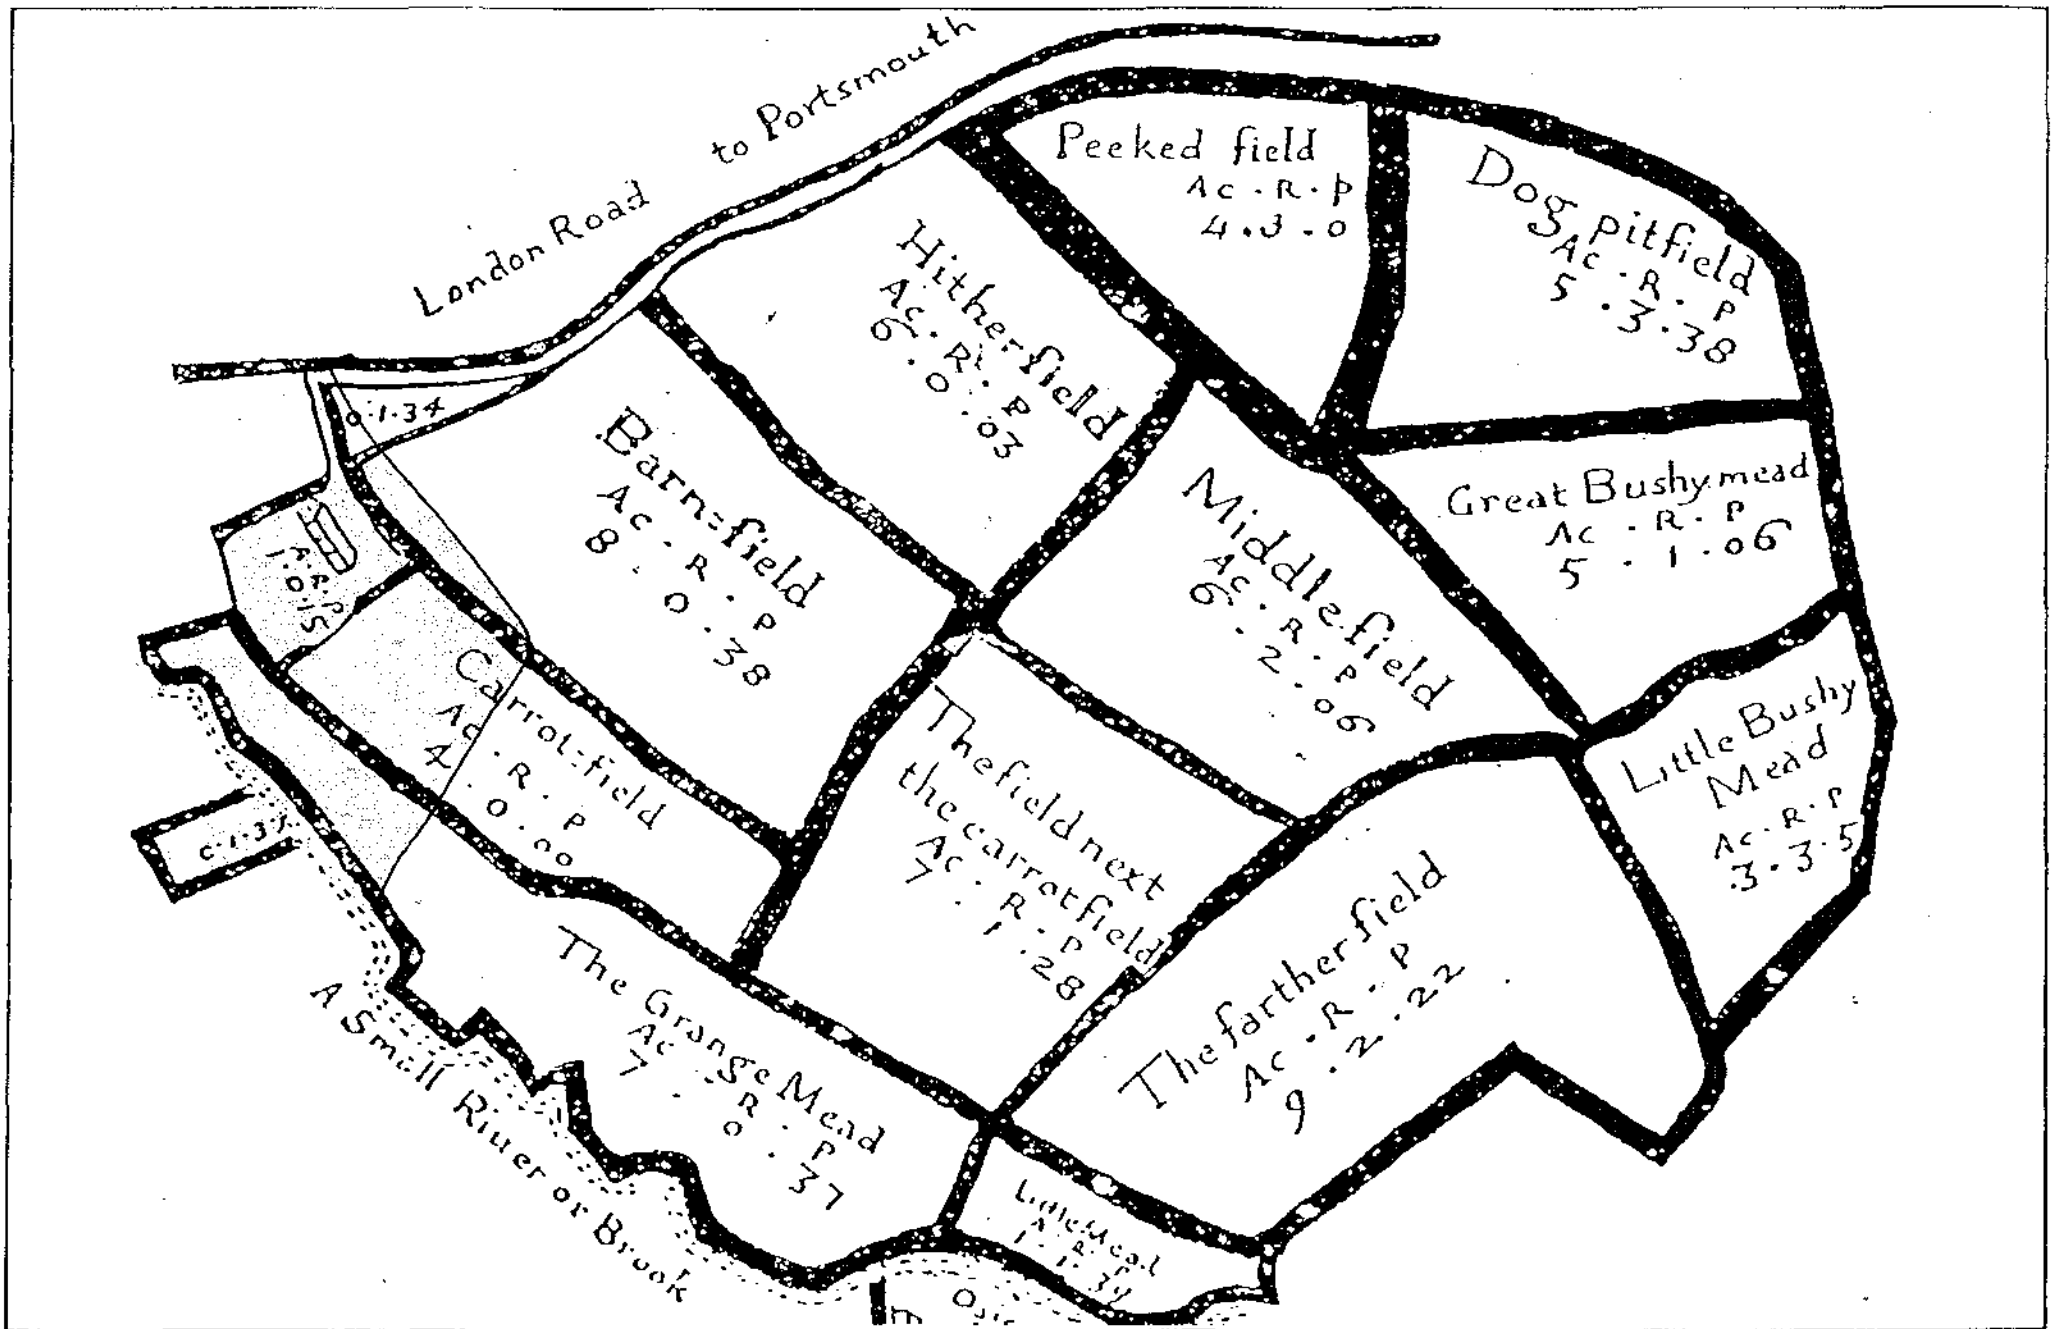 London Road to Portsmouth
Peeked field
Ac . R . P
4 . 3 . 0
Dog pitfield
Ac . R . P
5 . 3 . 38
Hither field
Ac . R . P
6 . 0 . 03
0.1.34
Barn=field
Ac . R . P
8 . 0 . 38
Middle field
Ac . R . P
6 . 2 . 06
Great Bushy mead
Ac . R . P
5 . 1 . 06
A.R.P
1.0.15
Carrot=field
Ac . R . P
4 . 0 . 00
The field next
the carrot field
Ac . R . P
7 . 1 . 28
Little Bushy
Mead
Ac . R . P
3 . 3 . 5
The farther field
Ac . R . P
9 . 2 . 22
The Grange Mead
Ac . R . P
7 . 0 . 37
A Small River or Brook
Little Mead
A . R . P